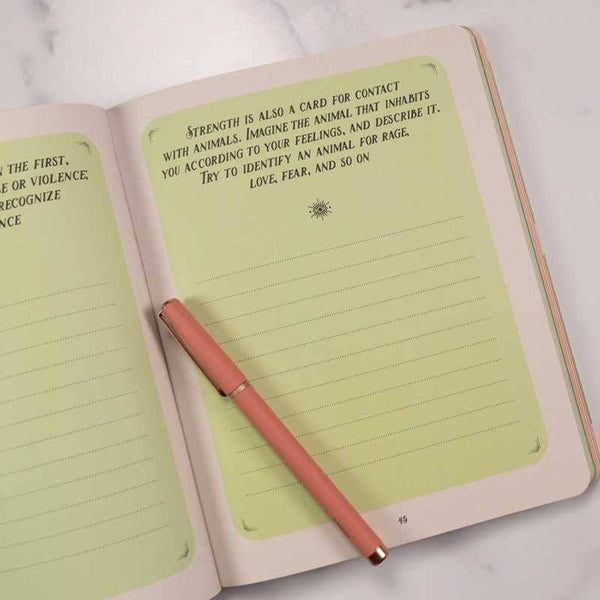 N THE FIRST,
E OR VIOLENCE;
RECOGNIZE
NCE
STRENGTH IS ALSO A CARD FOR CONTACT
WITH ANIMALS. IMAGINE THE ANIMAL THAT INHABITS
YOU ACCORDING TO YOUR FEELINGS, AND DESCRIBE IT.
TRY TO IDENTIFY AN ANIMAL FOR RAGE,
LOVE, FEAR, AND SO ON
49